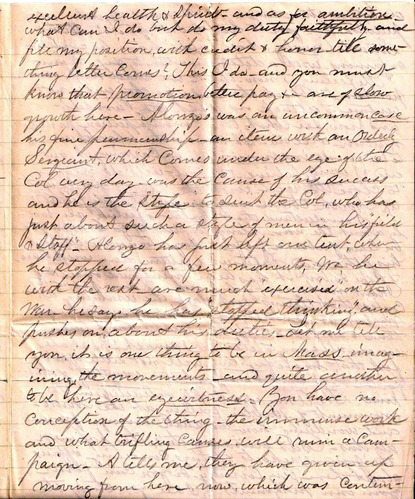 excellent health & spirits - and as for ambition
what can I do but do my duty faithfully and
fill my position with credit & honor till some-
thing better comes? This I do - and you must
know that promotion better pay & - are of slow
growth here - Alonzos was an uncommon case
his fine penmanship - an item with an Orderly
Sergeant, which comes under the eye of the
Col every day was the cause of his success
and he is the style to suit the Col, who has
just about such a style of men in his field
& Staff. Alonzo has just left our tent, where
he stopped for a few moments. We he
with the rest are much exercised on the
War he says he has "stopped thinking" and
pushes on about his duties - let me tell
you it is one thing to be in Mass. imag-
ining the movements and quite another
to be here an eyewitness - You have no
conception of the thing - the immense work
and what trifling causes will ruin a Cam-
paign - A tells me, they have given up
moving from here now, which was contem-